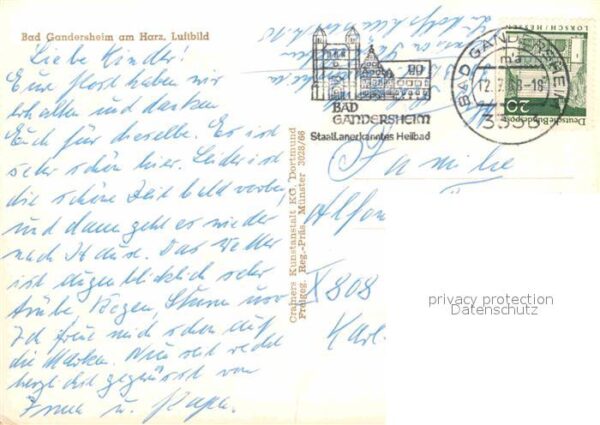 Bad Gandersheim am Harz. Luftbild
Liebe Kinder!
Eure Post haben wir
erhalten und danken
Euch für dieselbe. Es ist
sehr schön hier. Leider ist
die schöne Zeit bald vorbei,
und dann geht es wieder
nach Hause. Das Wetter
ist augenblicklich sehr
trübe, Regen, Sturm usw
Ich freue mich schon auf
die Marken. Nun seid recht
herzlichst gegrüsst von
u. Papa.
Crämers Kunstanstalt KG. Dortmund
Freigeg. Reg.-Präs. Münster 3628/66
BAD
GANDERSHEIM
Staatl. anerkanntes Heilbad
BAD GANDERSHEIM
12.7.68-18
3353
LORSCH/HESSEN
20
Deutsche Bundespost
Familie
Alfon
X 808
Karl-
privacy protection
Datenschutz